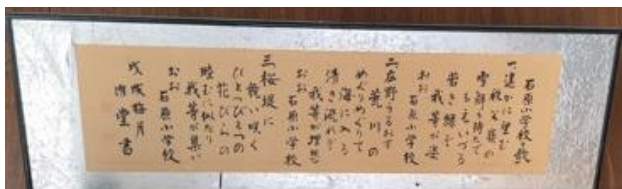 石原小学校の歌
一 遥かに望む
秩父嶺の
雪解を待ちて
もえいづる
若き緑ぞ
我等が姿
おお 石原小学校
二 広野うるおす
荒川の
めぐりめぐりて
海に入る
清き流れぞ
我等が理想
おお 石原小学校
三 桜堤に
競い咲く
ひとつひとつの
花びらの
睦むに似たり
我等が集い
おお 石原小学校
戊戌梅月
堂書